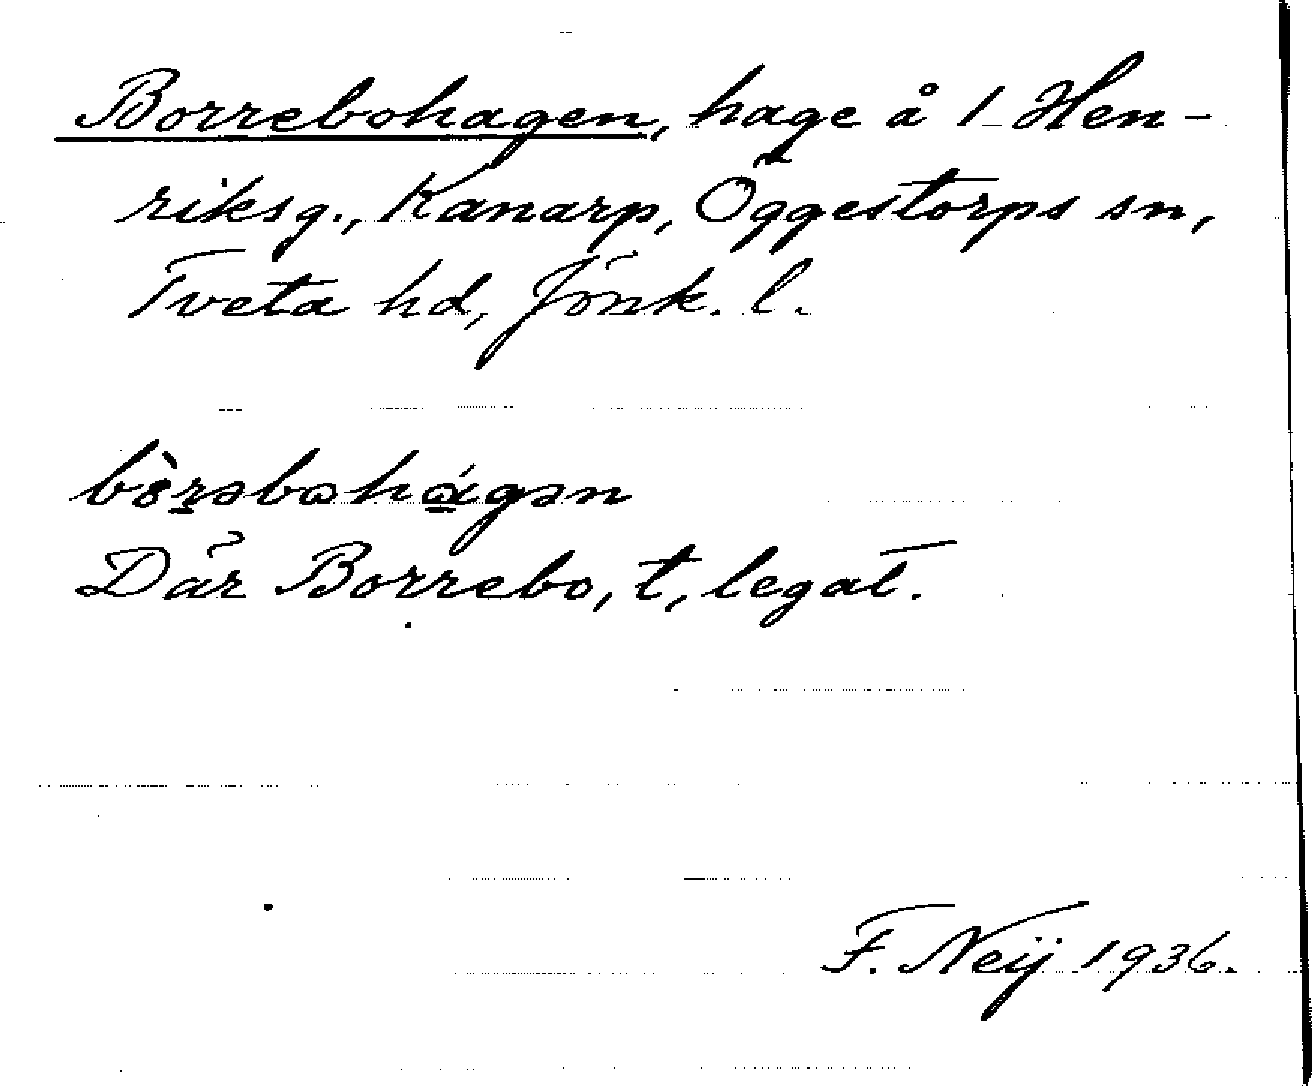 Borrebohagen, hage å 1 Hen-
riksg., Kanarp, Öggestorps sn,
Tveta hd, Jönk. l.
Där Borrebo, t, legat.
F. Neij 1936.